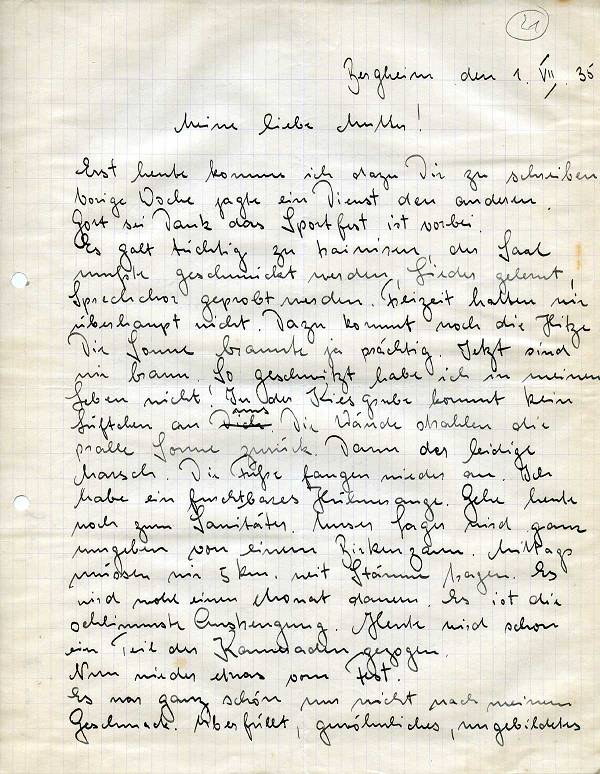 21
Bergheim den 1. VII. 35
Meine liebe Mutter!
Erst heute komme ich dazu Dir zu schreiben
Vorige Woche jagte ein Dienst den anderen.
Gott sei Dank das Sportfest ist vorbei.
Es galt tüchtig zu trainieren, der Saal
mußte geschmückt werden, Lieder gelernt,
Sprechchor geprobt werden. Freizeit hatten wir
überhaupt nicht. Dazu kommt noch die Hitze
Die Sonne brannte ja prächtig. Jetzt sind
wir braun. So geschwitzt habe ich in meinem
Leben nicht! In der Kiesgrube kommt kein
Lüftchen an uns Die Wände strahlen die
pralle Sonne zurück. Dann der leidige
Marsch. Die Füße fangen wieder an. Ich
habe ein furchtbares Hühnerauge. Gehe heute
noch zum Sanitäter. Unser Lager wird ganz
umgeben von einem Birkenzaun. Mittags
müssen wir 5 km. weit Stämme tragen. Es
wird wohl einen Monat dauern. Es ist die
schlimmste Anstrengung. Heute wird schon
ein Teil der Kameraden gezogen.
Nun wieder etwas vom Fest.
Es war ganz schön nur nicht nach meinem
Geschmack. Überfüllt, gewöhnliches, ungebildetes